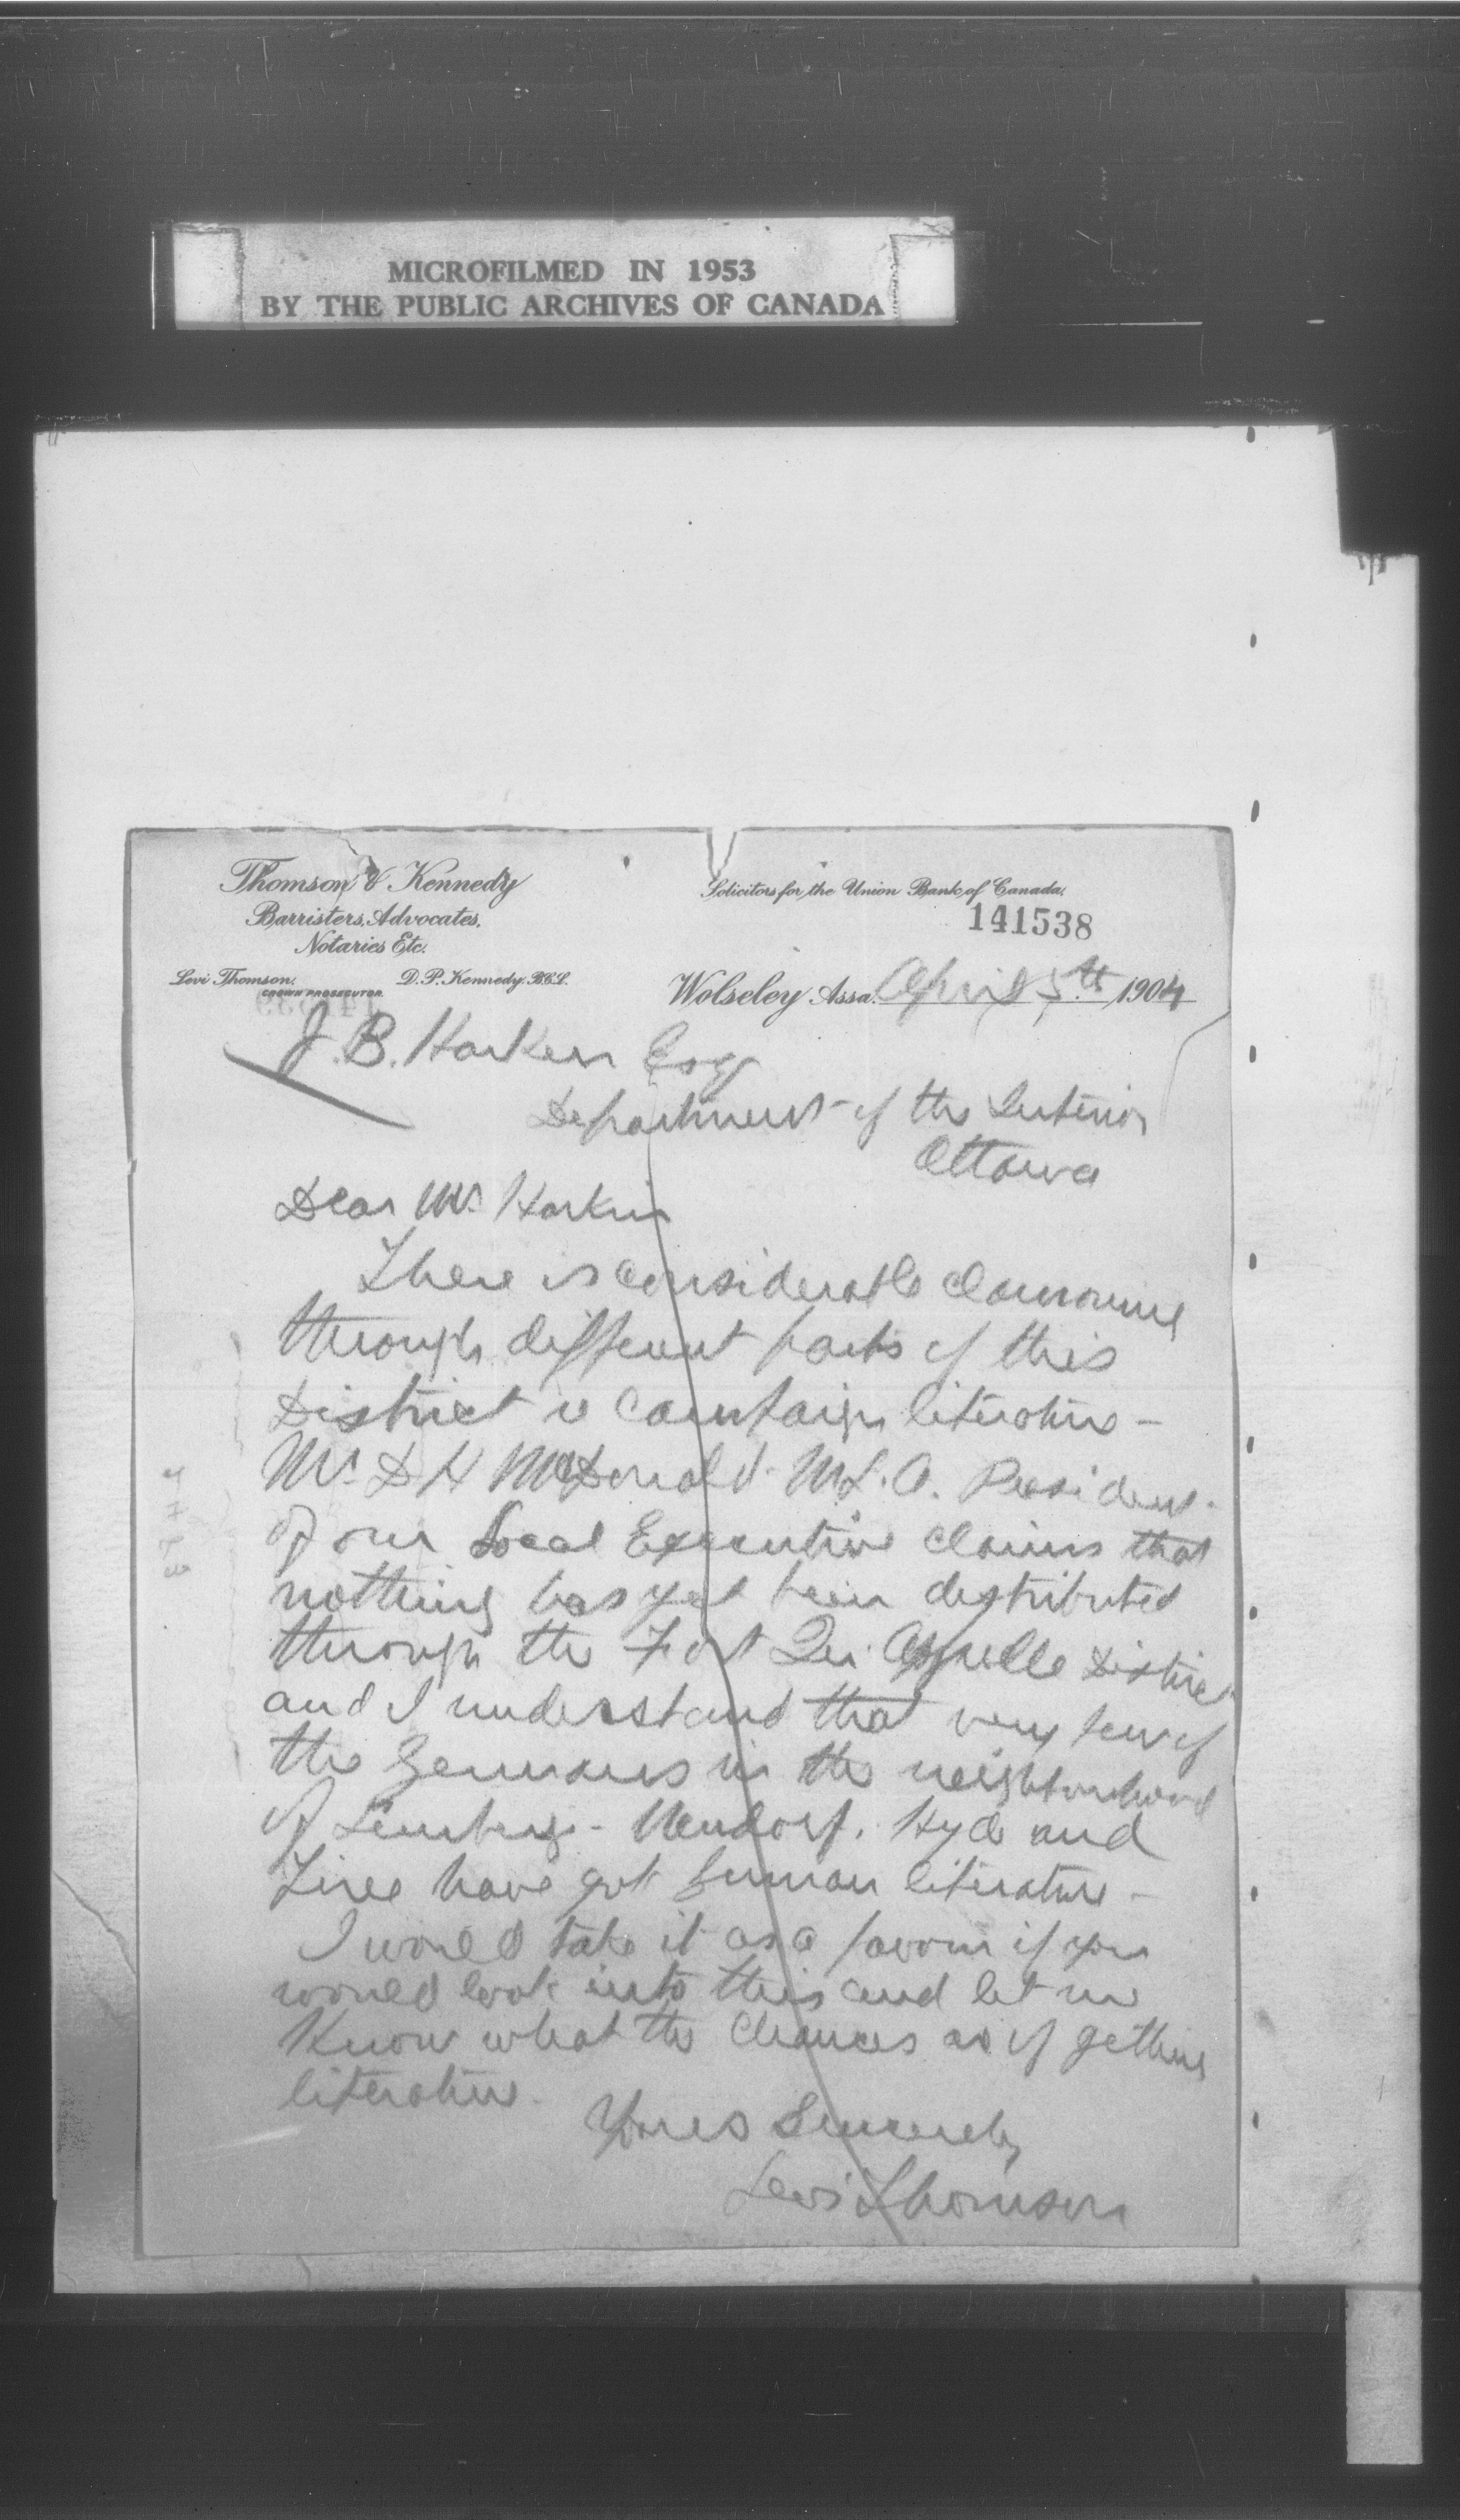 MICROFILMED IN 1953
BY THE PUBLIC ARCHIVES OF CANADA
Thomson & Kennedy
Barristers, Advocates,
Notaries Etc.
Levi Thomson.
CROWN PROSECUTOR
D. P. Kennedy. B.C.L.
Solicitors for the Union Bank of Canada.
141538
Wolseley Assa. April 5th 1904
J. B. Harkin Esq
Department of the Interior
Ottawa
Dear Mr. Harkin
There is considerable clamoring
through different parts of this
District re Campaign literature -
Mr. D H McDonald M.L.A. President
of our Local Executive claims that
nothing has yet been distributed
through the Fort Qu'Appelle District
and I understand that very few of
the Germans in the neighborhood
of Lemberg - Neudorf, Hyde and
have got German literature -
I would take it as a favour if you
would look into this and let me
know what the chances are of getting
literature.
Yours Sincerely
Levi Thomson